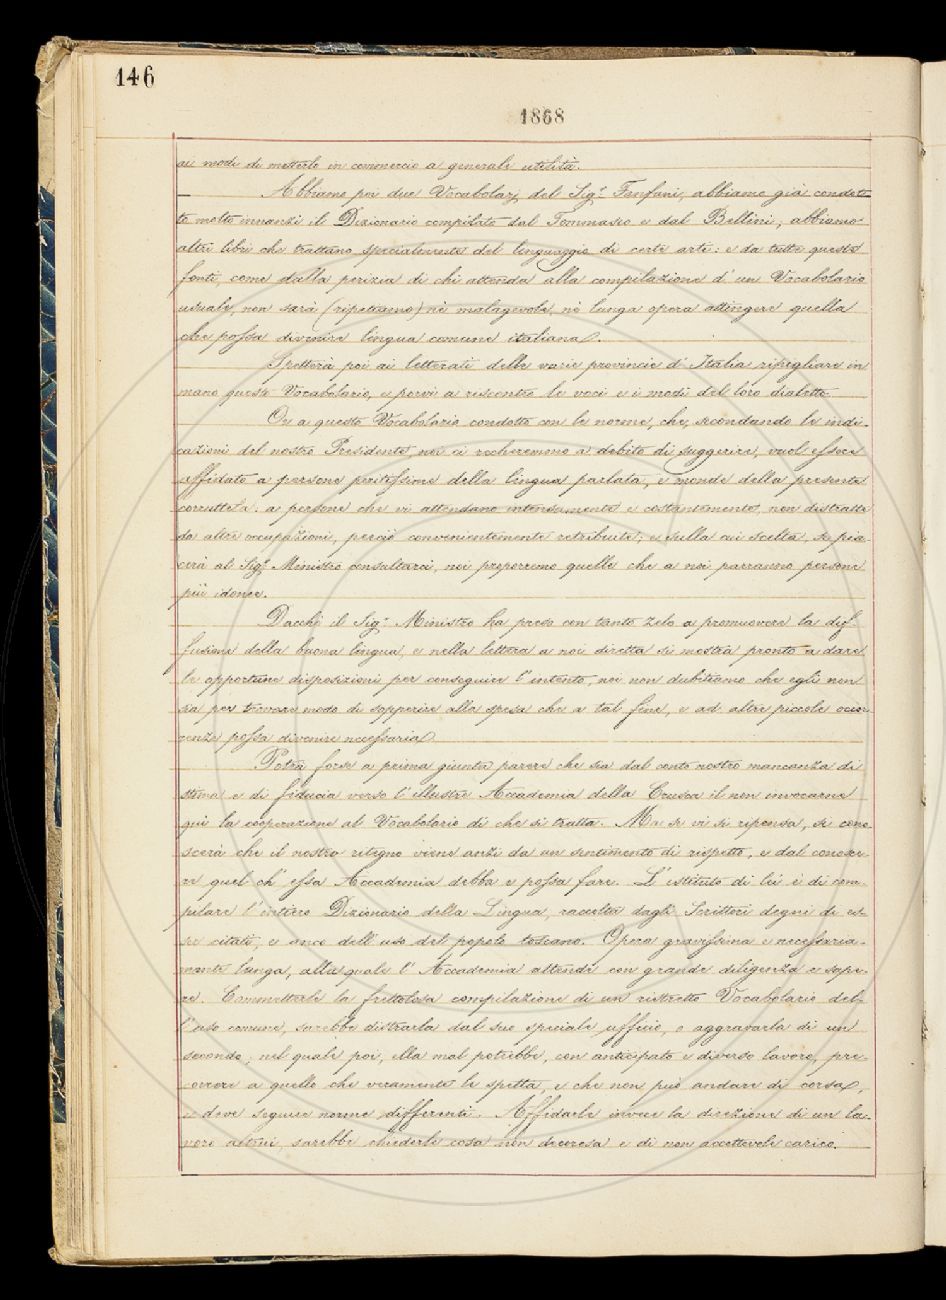 146
1868
ai modi di metterlo in commercio a generale utilità.
Abbiamo poi due Vocabolarj del Sig.r Fanfani, abbiamo già condot-
to molto innanzi il Dizionario compilato dal Tommaseo e dal Bellini; abbiamo
altri libri che trattano specialmente del linguaggio di certe arti: e da tutte queste
fonti, come dalla perizia di chi attenda alla compilazione d'un Vocabolario
usuale, non sarà (ripetiamo) nè malagevole, nè lunga opera attingere quella
che possa divenire lingua comune italiana.
Spetterà poi ai letterati delle varie provincie d'Italia ripigliare in
mano questo Vocabolario, e porvi a riscontro le voci e i modi del loro dialetto.
Or a questo Vocabolario condotto con le norme, che, secondando le indi-
cazioni del nostro Presidente noi ci recheremmo a debito di suggerire, vuol essere
affidato a persone peritissime della lingua parlata, e monde della presente
corruttela: a persone che vi attendano intensamente e costantemente, non distratte
da altre occupazioni, perciò convenientemente retribuite; e sulla cui scelta, se pia-
cerà al Sig.r Ministro consultarci, noi proporremo quelle che a noi parranno persone
più idonee.
Dacchè il Sig.r Ministro ha preso con tanto zelo a promuovere la dif-
fusione della buona lingua, e nella lettera a noi diretta si mostra pronto a dare
le opportune disposizioni per conseguire l'intento, noi non dubitiamo che egli non
sia per trovare modo di sopperire alla spesa che a tal fine, e ad altre piccole occor-
renze possa divenire necessaria.
Potrà forse a prima giunta parere che sia dal canto nostro mancanza di
stima e di fiducia verso l'illustre Accademia della Crusca il non invocarne
quì la cooperazione al Vocabolario di che si tratta. Ma se vi si ripensa, si cono-
scerà che il nostro ritegno viene anzi da un sentimento di rispetto, e dal conosce-
re quel ch'essa Accademia debba e possa fare. L'istituto di lei è di com-
pilare l'intiero Dizionario della Lingua, raccolta dagli Scrittori degni di es-
ser citati, e anco dell'uso del popolo toscano. Opera gravissima e necessaria-
mente lunga, alla quale l'Accademia attende con grande diligenza e sape-
re. Commetterle la frettolosa compilazione di un ristretto Vocabolario del-
l'uso comune, sarebbe distrarla dal suo speciale ufficio, o aggravarla di un
secondo; nel quale poi, ella mal potrebbe, con anticipato e diverso lavoro, pre-
correre a quello che veramente le spetta, e che non può andare di corsa,
e deve seguire norme differenti. Affidarle invece la direzione di un la-
voro altrui, sarebbe chiederle cosa non decorosa e di non accettevole carico.